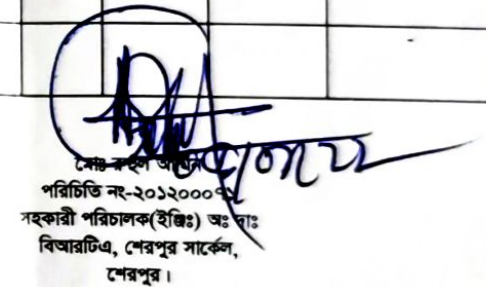 মোঃ
পরিচিতি নং-২০১২০০০
সহকারী পরিচালক(ইঞ্জিঃ) অঃ দাঃ
বিআরটিএ, শেরপুর সার্কেল,
শেরপুর।